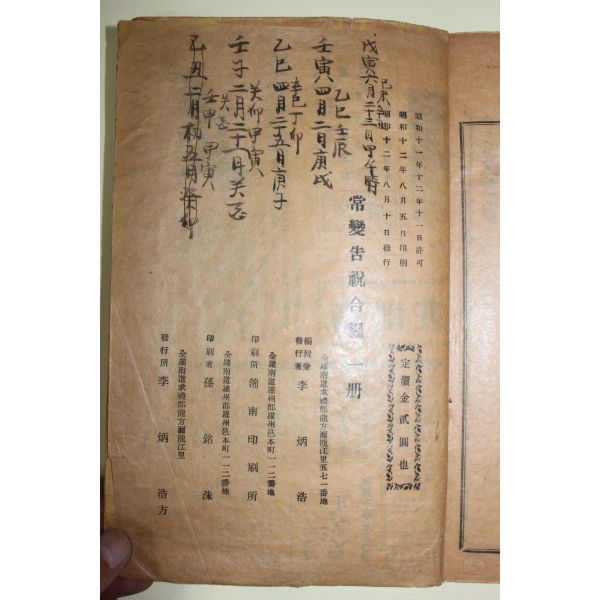 昭和十一年十二月十一日許可
昭和十二年八月五日印刷
昭和十二年八月十日發行
定價金貳圓也
常變告祝合編 一册
編輯兼
發行者 李炳浩
全羅南道求禮郡龍方面龍江里五七一番地
印刷所 錦南印刷所
全羅南道羅州郡羅州邑本町一一二番地
印刷者 孫銘洙
全羅南道羅州郡羅州邑本町一一二番地
發行所 李炳浩方
全羅南道求禮郡龍方面龍江里
戊寅六月二十三日甲午時
乙巳 壬辰
壬寅四月二日庚戌
辛巳 丁卯
乙巳四月二十五日庚子
癸卯 甲寅
壬子二月二十一日
壬申 甲寅
乙丑二月初五日癸卯